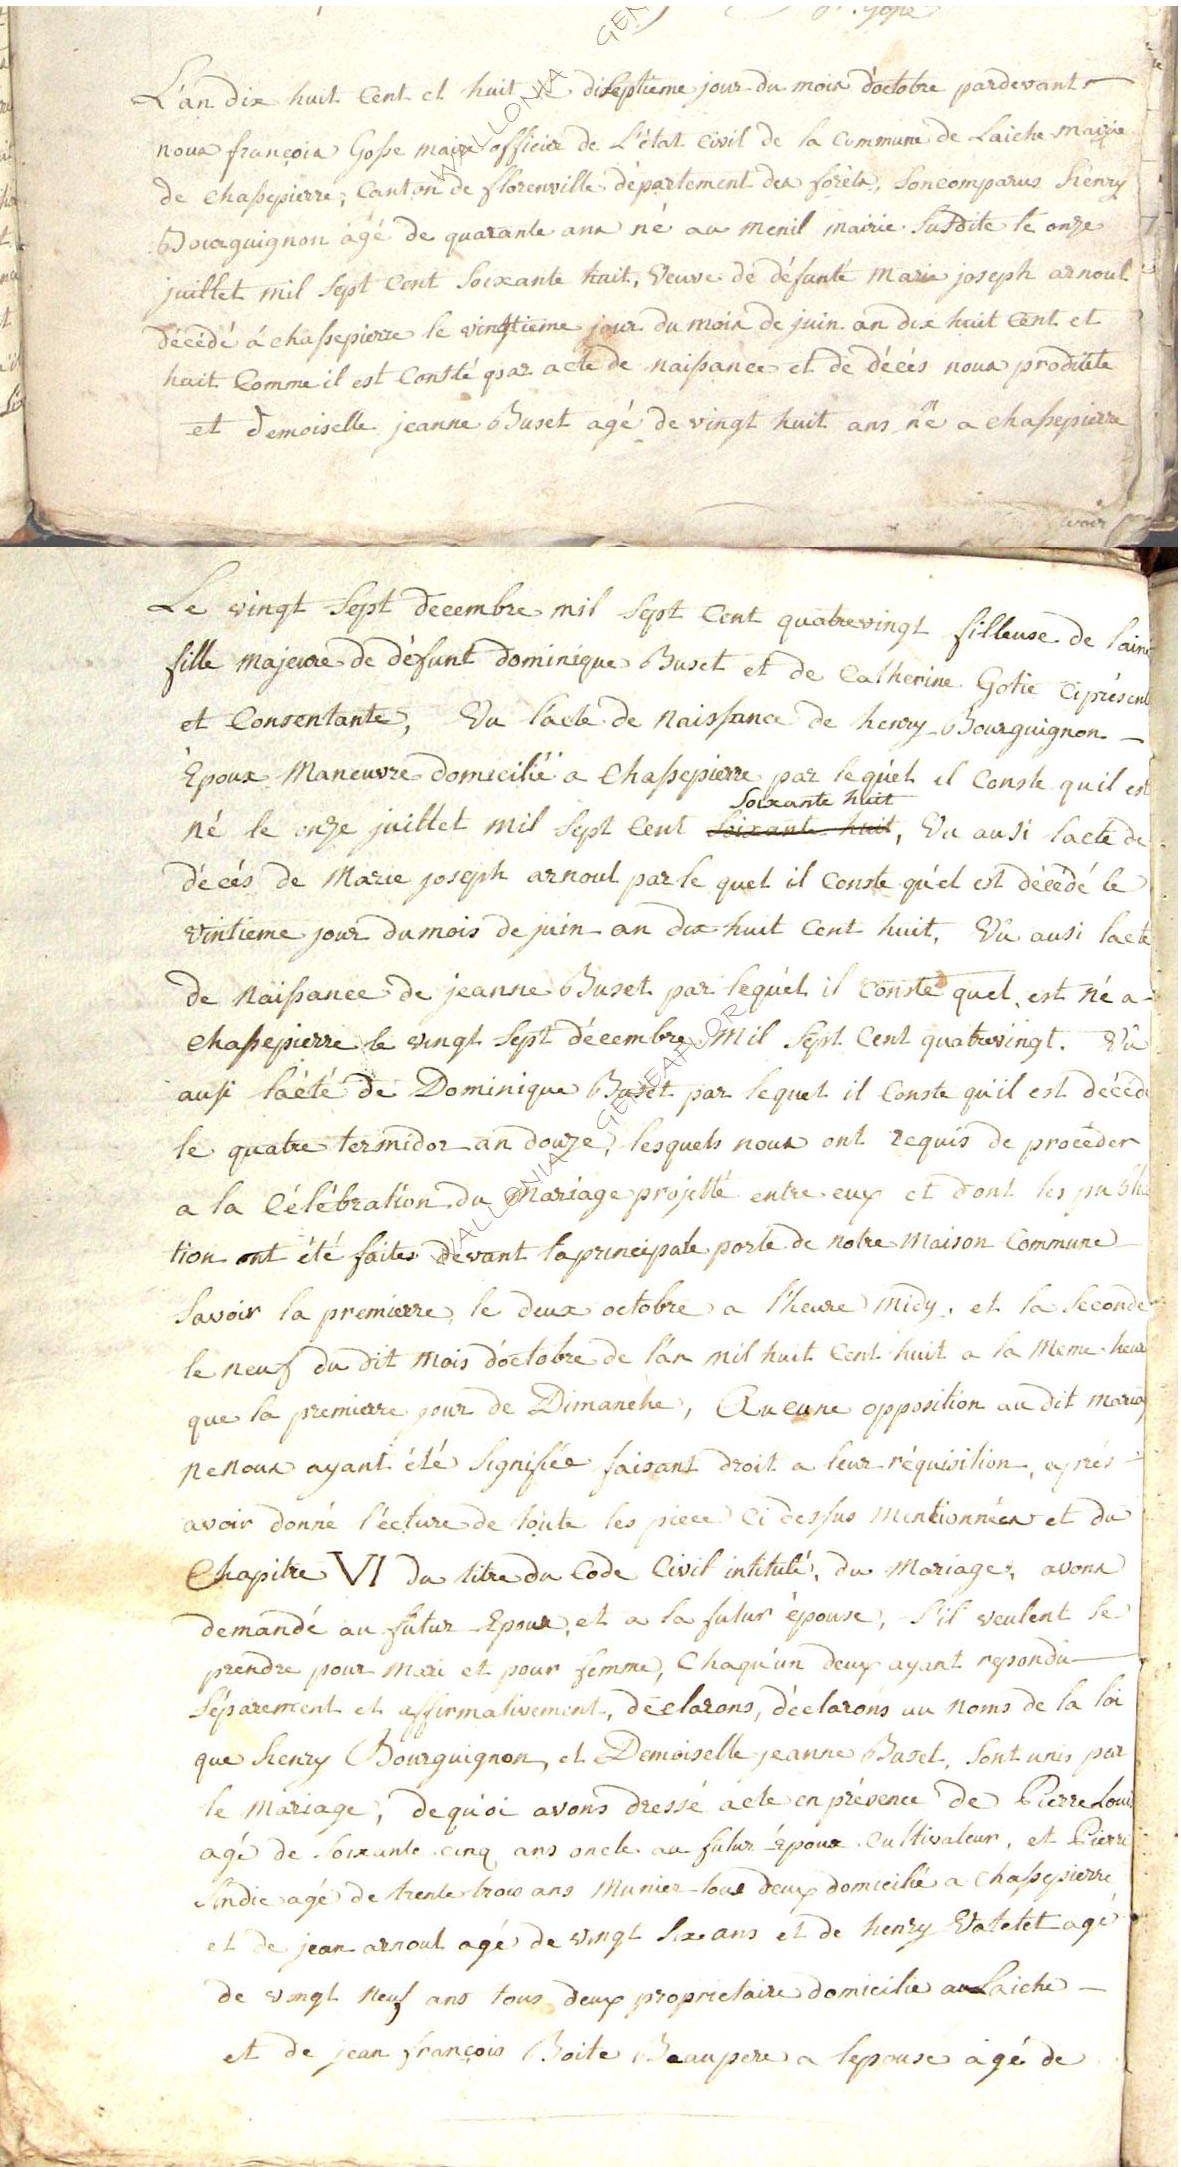 L'an dix huit Cent et huit le diseptieme jour du mois d'octobre pardevant
nous françois Gosse maire officier de L'état Civil de la Commune de Laiche mairie
de Chassepierre, Canton de florenville département des forèts, Soncomparus henry
Bourguignon agé de quarante ans né au menil mairie Susdite le onze
juillet mil Sept Cent Soixante huit, Veuve de défunte marie joseph arnoul
décédé á chassepierre le vingtieme jour du mois de juin an dix huit Cent et
huit Comme il est Consté par acte de naissance et de décés nous produite
et demoiselle jeanne Buset agé de vingt huit ans né a chassepierre
Le vingt Sept decembre mil Sept Cent quatrevingt filleuse de laine
fille majeure de défunt dominique Buset et de Catherine Gotie Ciprésent
et Consentante, Vu l'acte de Naissance de henry Bourguignon
Epoux Maneuvre domicilié a Chassepierre par lequel il Conste quil est
Soixante huit
né le onze juillet mil Sept Cent Soixante huit, Vu ausi lacte de
décés de Marie joseph arnoul par le quel il Conste qu'el est décédé le
vintieme jour du mois de juin an dix huit Cent huit, Vu ausi lacte
de Naissance de jeanne Buset par lequel il Conste quel est Né a
chassepierre le vingt Sept décembre Mil Sept Cent quatrevingt. Vu
ausi láété de Dominique Buset par lequel il Conste qu'il est décédé
le quatre termidor an douze, lesquels nous ont requis de procéder
a la Célébration du Mariage projetté entre eux et dont les publi
tion ont été faites devant la principale porte de notre Maison Commune
Savoir la premierre le deux octobre a l'heure Midy. et la Seconde
le neuf du dit Mois d'octobre de l'an Mil huit Cent huit a la Meme heur
que la premierre jour de Dimanche, Aucune opposition au dit mariag
ne nous ayant été Signifiée faisant droit a leur réquisition, aprés
avoir donné l'écture de toute les piece Ci dessus mentionnées et du
Chapitre VI du titre du Code Civil intitulé, du Mariage, avons
demandé au futur Epoux, et a la futur épouse, S'il veulent se
prendre pour Mari et pour femme, Chaqu'un deux ayant repondu
Séparement et affirmativement, déclarons, déclarons au noms de la loi
que henry Bourguignon, et Demoiselle jeanne Buset, Sont unis par
le Mariage, dequoi avons dressé acte en présence de Pierre Louis
agé de Soixante cinq ans oncle au futur Epoux Cultivateur, et Pierre
Sindic agé de trente trois ans Munier tous deux domicilié a Chassepierre
et de jean arnoul agé de vingt Six ans et de henry Vatelet agé
de vingt neuf ans tous deux proprietaire domicilie au Laiche
et de jean françois Boite Beaupere a lepouse agé de
WALLONIA GENEAFLOR